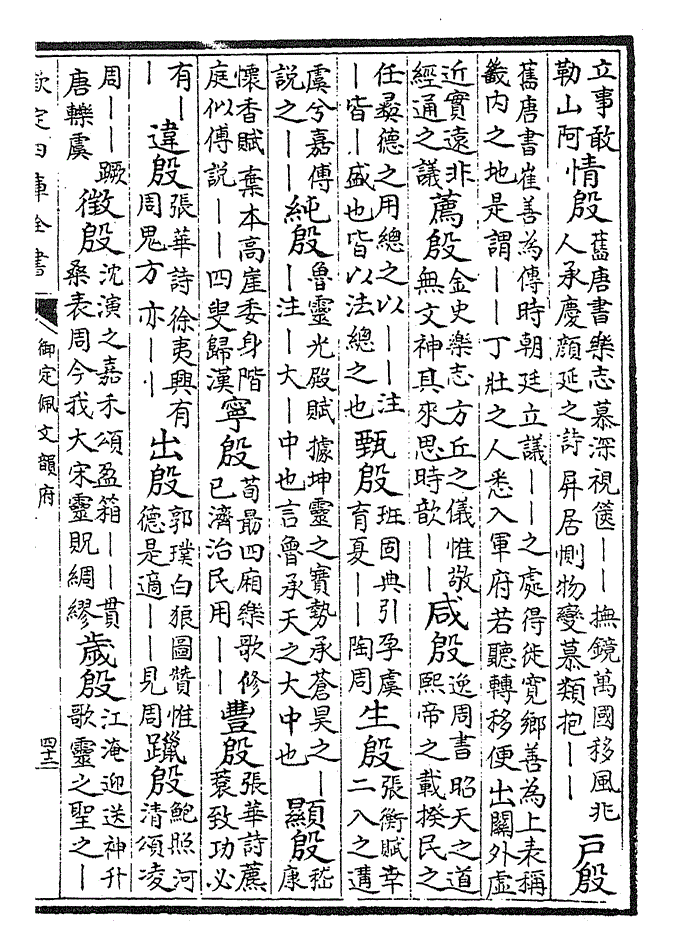 立事敢勒山阿 情殷 舊唐書樂志慕深視篋——撫鏡萬國移風兆人承慶顔延之詩屏居惻物變慕類抱—— 戸殷
舊唐書崔善為傳時朝廷立議——之處得徙寛鄉善為上表稱畿内之地是謂——丁壯之人悉入軍府若聽轉移便出關外虛
近實遠非經通之議 薦殷 金史樂志方丘之儀惟敬無文神其來思時歆—— 咸殷 逸周書昭天之道熙帝之載揆民之
任彞德之用總之以——注—皆—盛也皆以法總之也 甄殷 班固典引孕虞育夏——陶周 生殷 張衡賦幸二八之遘
虞兮嘉傅說之—— 純殷 魯靈光殿賦據坤靈之寶勢承蒼昊之——注—大—中也言魯承天之大中也 顯殷 嵇康
懷香賦棄本高崖委身階庭似傅説——四叟歸漢 寧殷 荀朂四廂樂歌修已濟治民用—— 豐殷 張華詩薦蓘致功必
有—— 違殷 張華詩徐夷興有周鬼方亦—— 出殷 郭璞白狼圖贊惟德是適——見周 躐殷 鮑照河清頌凌
周——蹶唐轢虞 徴殷 沈演之嘉禾頌盈箱——貫桑表周今我大宋靈貺綢繆 歲殷 江淹迎送神升歌靈之聖之—
欽定四庫全書
御定佩文韻府
四十三